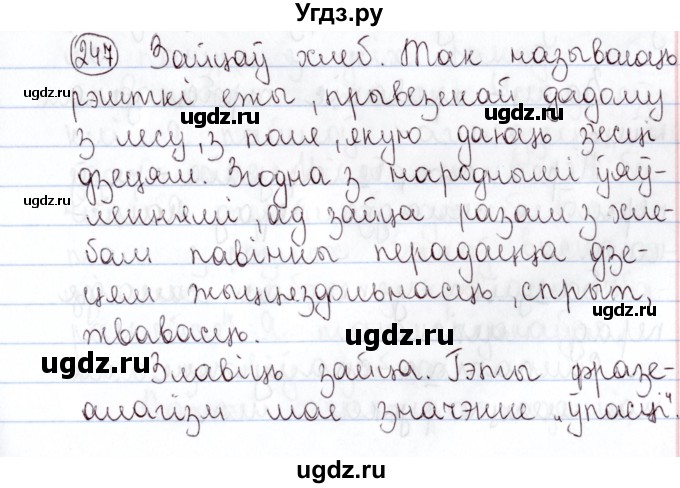 Угдз.ру
247 Зайцаў хлеб. Так называюць
рэшткі ежы, прывезенай дадому
з лесу, з поля, якую даюць з'есці
дзецям. Згодна з народнымі ўяў-
леннямі, ад зайца разам з хле-
бам павінны перадаецца дзе-
цям жыццяздольнасць, спрыт,
жвавасць.
Злавіць зайца. Гэты фразе-
алагізм мае значэнне „ўпасці".
ugdz.ru
ugdz.ru
ugdz.ru
ugdz.ru
ugdz.ru
ugdz.ru
ugdz.ru
ugdz.ru
ugdz.ru